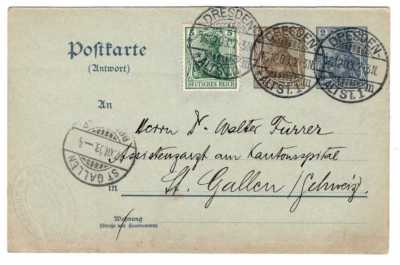 Postkarte
(Antwort)
An
Herrn Dr Walter Furrer
Assistenzarzt am Kantonsspital
in St. Gallen (Schweiz)
Wohnung
(Straße und Hausnummer)
5 5
DEUTSCHES REICH
2
DRESDEN-
ALTST. 1
DRESDEN-
ALTST. 1
DRESDEN-
ALTST. 1
ST GALLEN